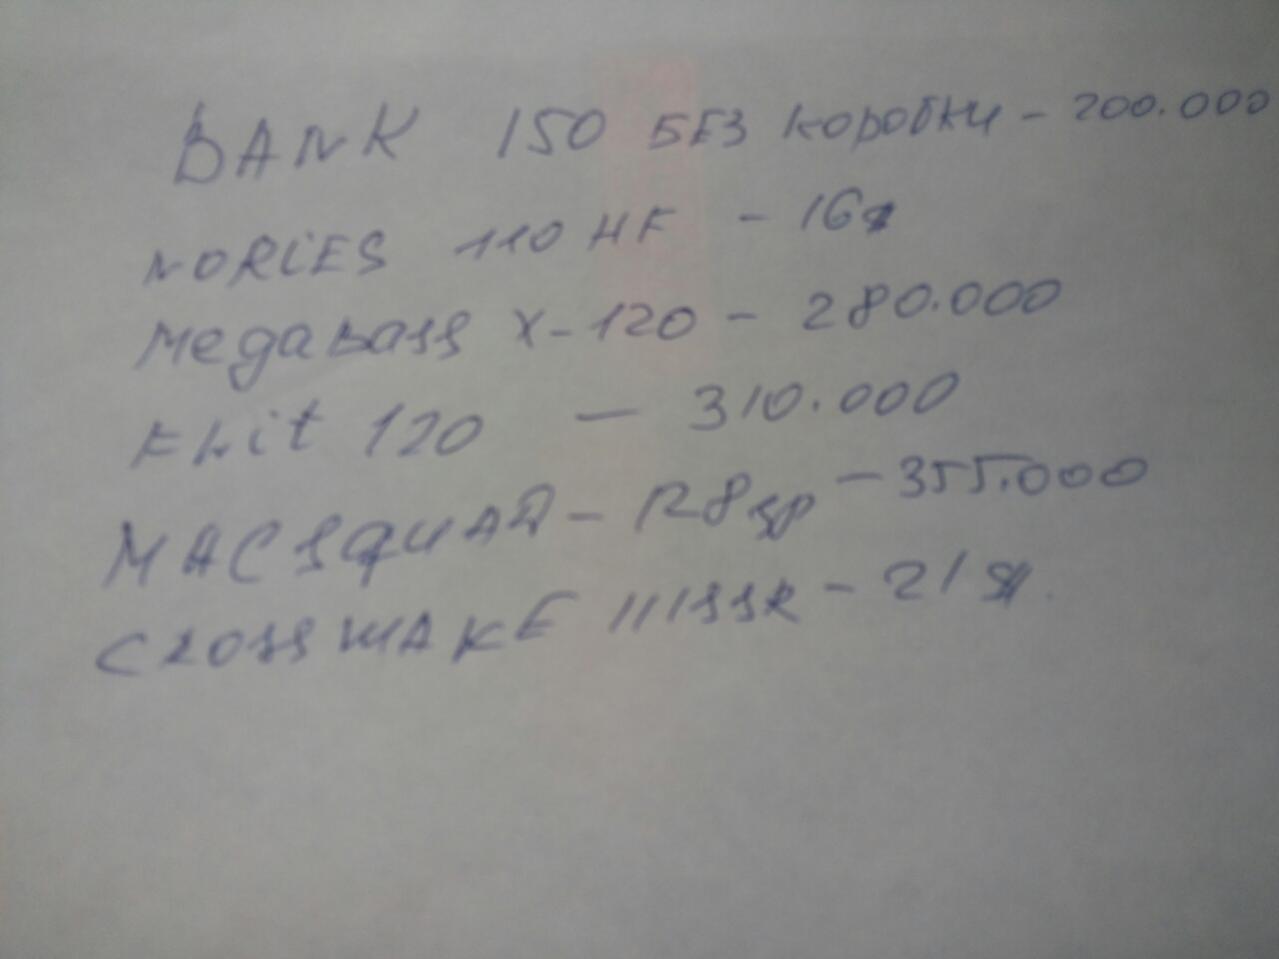 BANK 150 БЕЗ коробки - 200.000
NORIES 110 HF - 16$
MegaBass X-120 - 280.000
Flit 120 - 310.000
MACSQUAD - 128 sp - 355.000
CROSSWAKE 111SSR - 21$.